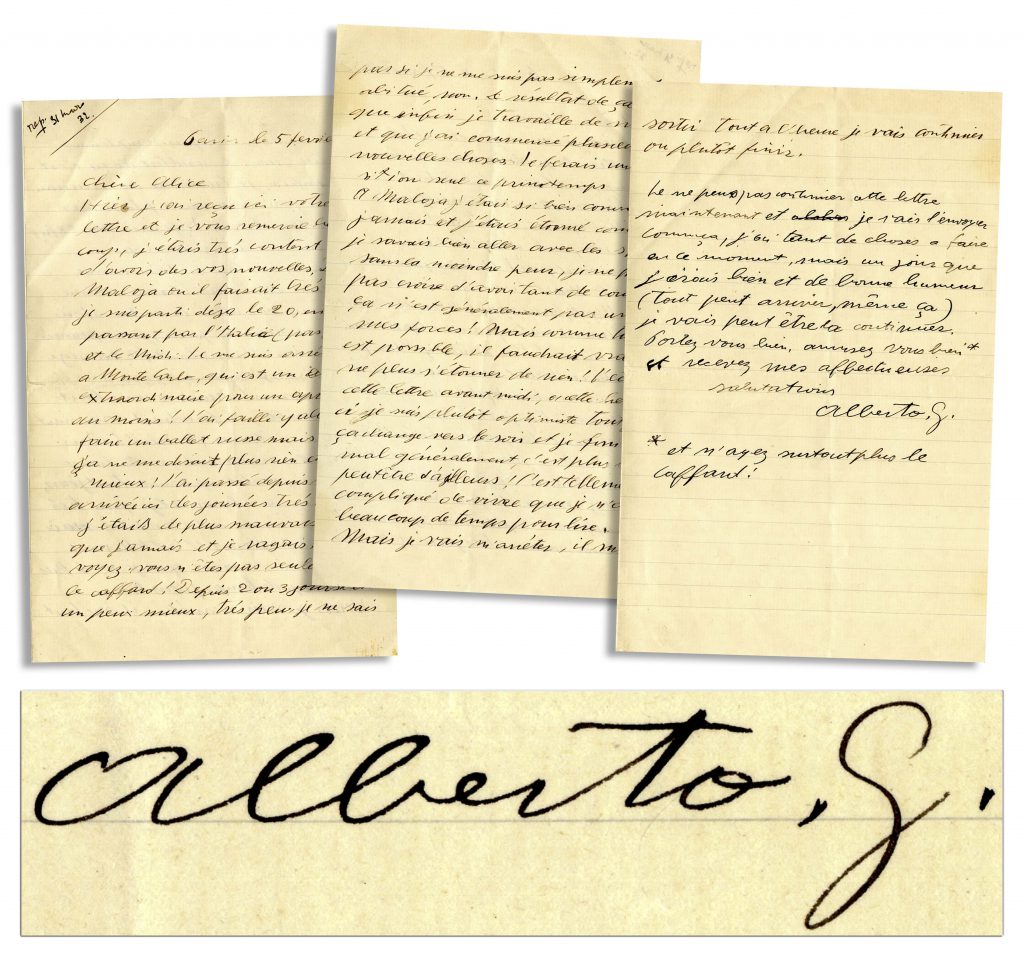 rep. 31 mar
32
Paris le 5 fevri
chère Alice
Hier j'ai reçu ici votre
lettre et je vous remercie be
coup, j'étais trés content
d'avoir des vos nouvelles,
Maloja ou il faisait trés
je suis parti déja le 20, en
passant par l'Italie (pas
et le Midi. Je me suis arrê
a Monte Carlo, qui est un
extraordinaire pour un apr
au moins! J'ai failli y all
faire un ballet russe mais
ça ne me disait plus rien
mieux! J'ai passé depuis
arrivée ici des journées trés
j'étais de plus mauvais
que jamais et je ragais,
voyez vous n'êtes pas seule
le caffard! Depuis 2 ou 3 jours
un peux mieux, trés peu je ne sais
pas si je ne me suis pas simplem
abitué, non. Le résultat de ça
que enfin je travaille de
et que j'ai commencé plusie
nouvelles choses. Je ferais un
ition seul ce printemps
A Maloja j'étais si bien comm
jamais et j'étais étonné com
je savais bien aller avec les s
sans la moindre peur, je ne p
pas croire d'avoir tant de cou
ça n'est généralement pas
mes forces! Mais comme
est possible, il faudrait vra
ne plus s'étonner de rien! J'ec
cette lettre avant midi, a cette he
ci je suis plutot optimiste tout
ça change vers le soir et je
mal généralement, c'est plus
peut être d'ailleurs! C'est tellem
compliqué de vivre que je n'
beaucoup de temps pour lire.
Mais je vais m'arêter, il
sortir tout a l'heure je vais continuer
ou plutot finir.
Je ne peux pas continuer cette lettre
maintenant et je vais l'envoyer
comme ça, j'ai tant de choses a faire
en ce moment, mais un jour que
j'érais bien et de bonne humeur
(tout peut arriver, même ça)
je vais peut être la continuer.
Portez vous bien, amusez vous bien*
et recevez mes affectueuses
salutations
Alberto. G.
* et n'ayez surtout plus le
caffard!
Alberto. G.